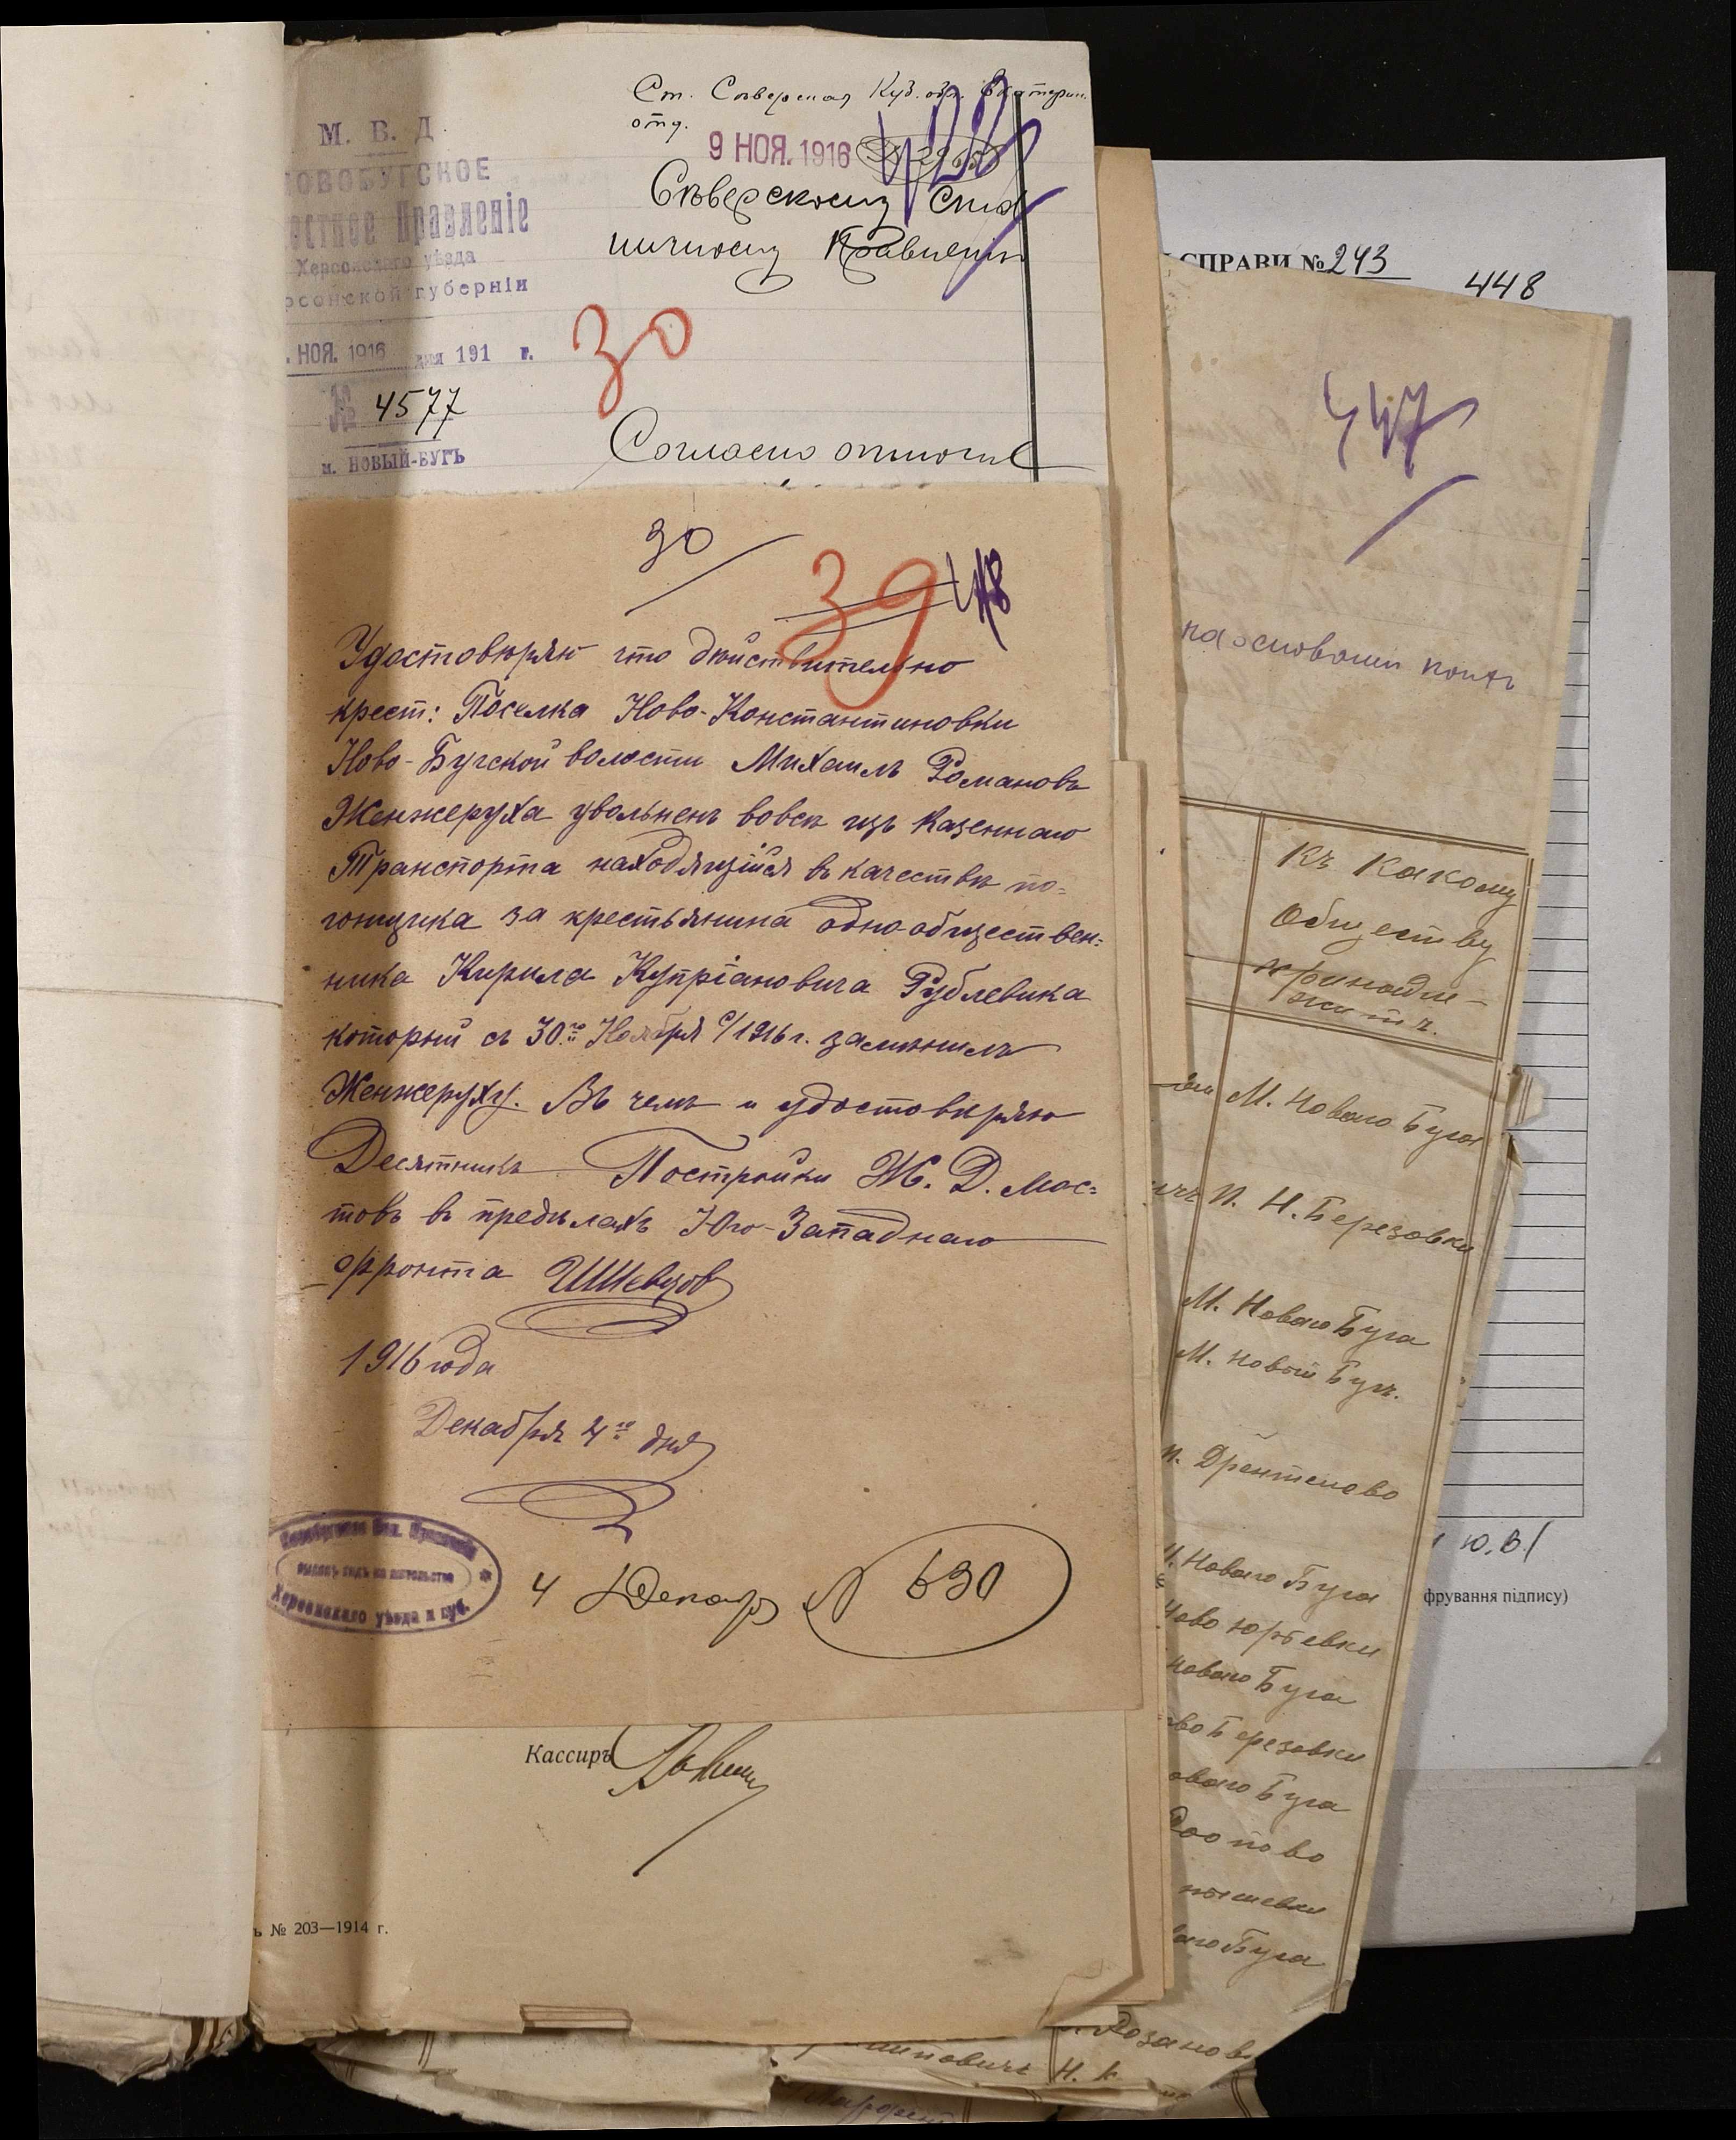 Ст. Северская Куб. обл. Екатерин.
отд.
М. В. Д.
9 НОЯ. 1916
428
НОВОБУГСКОЕ
Северскому Стан
ичному Правленію
Правленіе
Херсонскаго уѣзда
Херсонской губерніи
30
НОЯ. 1916 дня 191 г.
№ 4577
м. НОВЫЙ-БУГЪ
Согласно отноше
30
39 448
Удостовѣряю что дѣйствительно
крест: Поселка Ново-Константиновки
Ново-Бугской волости Михаилъ Романовъ
Женжеруха увольненъ вовсе изъ Казеннаго
Транспорта находящійся въ качествѣ по=
гонщика за крестьянина одно-обществен=
ника Кирила Купріановича Рублевика
который съ 30го Ноября с/1916 г. замѣнилъ
Женжеруху. Въ чемъ и удостовѣряю
Десятникъ Постройки Ж. Д. Мос=
товъ въ предѣлахъ Юго-Западнаго
фронта ШШевцов
1916 года
Декабря 4го дня
Новобугское Вол. Правленіе
Херсонскаго уѣзда и губ.
4 Декабр № 630
Кассиръ
№ 203—1914 г.
СПРАВИ № 243
448
447
на основаніи
Къ Какому
Обществу
принадле-
житъ.
М. Новаго Буга
П. Н. Березовки
М. Новаго Буга
М. Новый Бугъ.
п. Дрентелово
Новаго Буга
Ново Юрьевки
Новаго Буга
ово Березовки
оваго Буга
ваго Буга
Ю.В./
фрування підпису)
Розанов
Н. К.